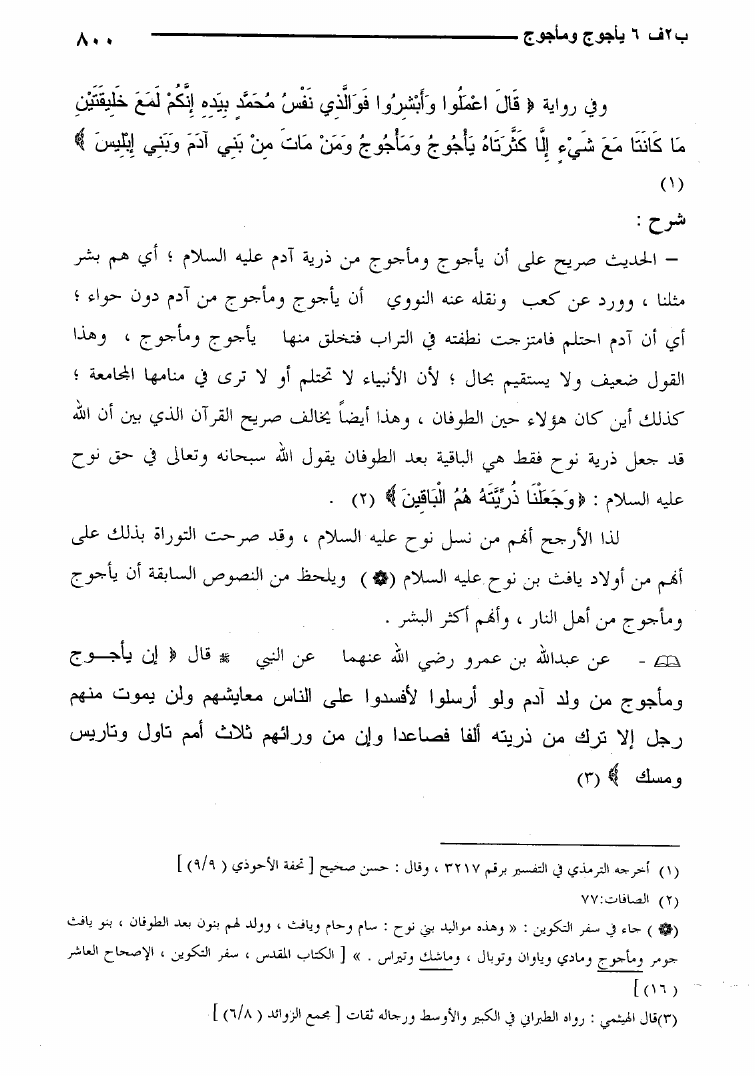 ب٢ف ٦ يأجوج ومأجوج ٨٠٠
وفي رواية ﴿ قَالَ اعْمَلُوا وَأَبْشِرُوا فَوَالَّذِي نَفْسُ مُحَمَّدٍ بِيَدِهِ إِنَّكُمْ لَمَعَ خَلِيقَتَيْنِ
مَا كَانَتَا مَعَ شَيْءٍ إِلَّا كَثَّرَتَاهُ يَأْجُوجُ وَمَأْجُوجُ وَمَنْ مَاتَ مِنْ بَنِي آدَمَ وَبَنِي إِبْلِيسَ ﴾
(١)
شرح :
– الحديث صريح على أن يأجوج ومأجوج من ذرية آدم عليه السلام ؛ أي هم بشر
مثلنا ، وورد عن كعب ونقله عنه النووي أن يأجوج ومأجوج من آدم دون حواء ؛
أي أن آدم احتلم فامتزجت نطفته في التراب فتخلق منها يأجوج ومأجوج ، وهذا
القول ضعيف ولا يستقيم بحال ؛ لأن الأنبياء لا تحتلم أو لا ترى في منامها المجامعة ؛
كذلك أين كان هؤلاء حين الطوفان ، وهذا أيضاً يخالف صريح القرآن الذي بين أن الله
قد جعل ذرية نوح فقط هي الباقية بعد الطوفان يقول الله سبحانه وتعالى في حق نوح
عليه السلام : ﴿وَجَعَلْنَا ذُرِّيَّتَهُ هُمُ الْبَاقِينَ﴾ (٢) .
لذا الأرجح أنهم من نسل نوح عليه السلام ، وقد صرحت التوراة بذلك على
أنهم من أولاد يافث بن نوح عليه السلام (❁) ويلحظ من النصوص السابقة أن يأجوج
ومأجوج من أهل النار ، وأنهم أكثر البشر .
🕮 - عن عبدالله بن عمرو رضي الله عنهما عن النبي ﷺ قال ﴿ إن يأجـــوج
ومأجوج من ولد آدم ولو أرسلوا لأفسدوا على الناس معايشهم ولن يموت منهم
رجل إلا ترك من ذريته ألفا فصاعدا وإن من ورائهم ثلاث أمم تاول وتاريس
ومسك ﴾ (٣)
(١) أخرجه الترمذي في التفسير برقم ٣٢١٧ ، وقال : حسن صحيح [ تحفة الأحوذي ( ٩/٩) ]
(٢) الصافات:٧٧
(❁) جاء في سفر التكوين : « وهذه مواليد بني نوح : سام وحام ويافث ، وولد لهم بنون بعد الطوفان ، بنو يافث
جومر ومأجوج ومادي وياوان وتوبال ، وماشك وتيراس . » [ الكتاب المقدس ، سفر التكوين ، الإصحاح العاشر
(١٦) ]
(٣)قال الهيثمي : رواه الطبراني في الكبير والأوسط ورجاله ثقات [ مجمع الزوائد ( ٦/٨) ]